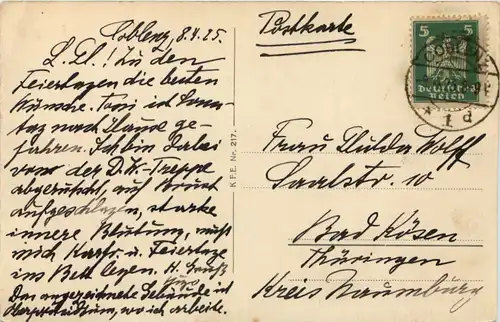 Coblenz, 8.4.25.
L. El.! Zu den
Feiertagen die besten
Wünsche. Toni ist Sonn-
tag nach Hause ge-
fahren. Ich bin dabei
von der D.K.-Treppe
abgerutscht, auf Brust
aufgeschlagen, starke
innere Blutung, muß
mich Karfr. u. Feiertage
ins Bett legen. H. Gruß
Das angezeichnete Gebäude ist
Oberpräsidium, wo ich arbeite.
K.F.E. Nr. 217.
Postkarte
5 5
Deutsches
Reich
Frau Wolff
Saalstr. 10
Bad Kösen
Thüringen
Kreis Naumburg